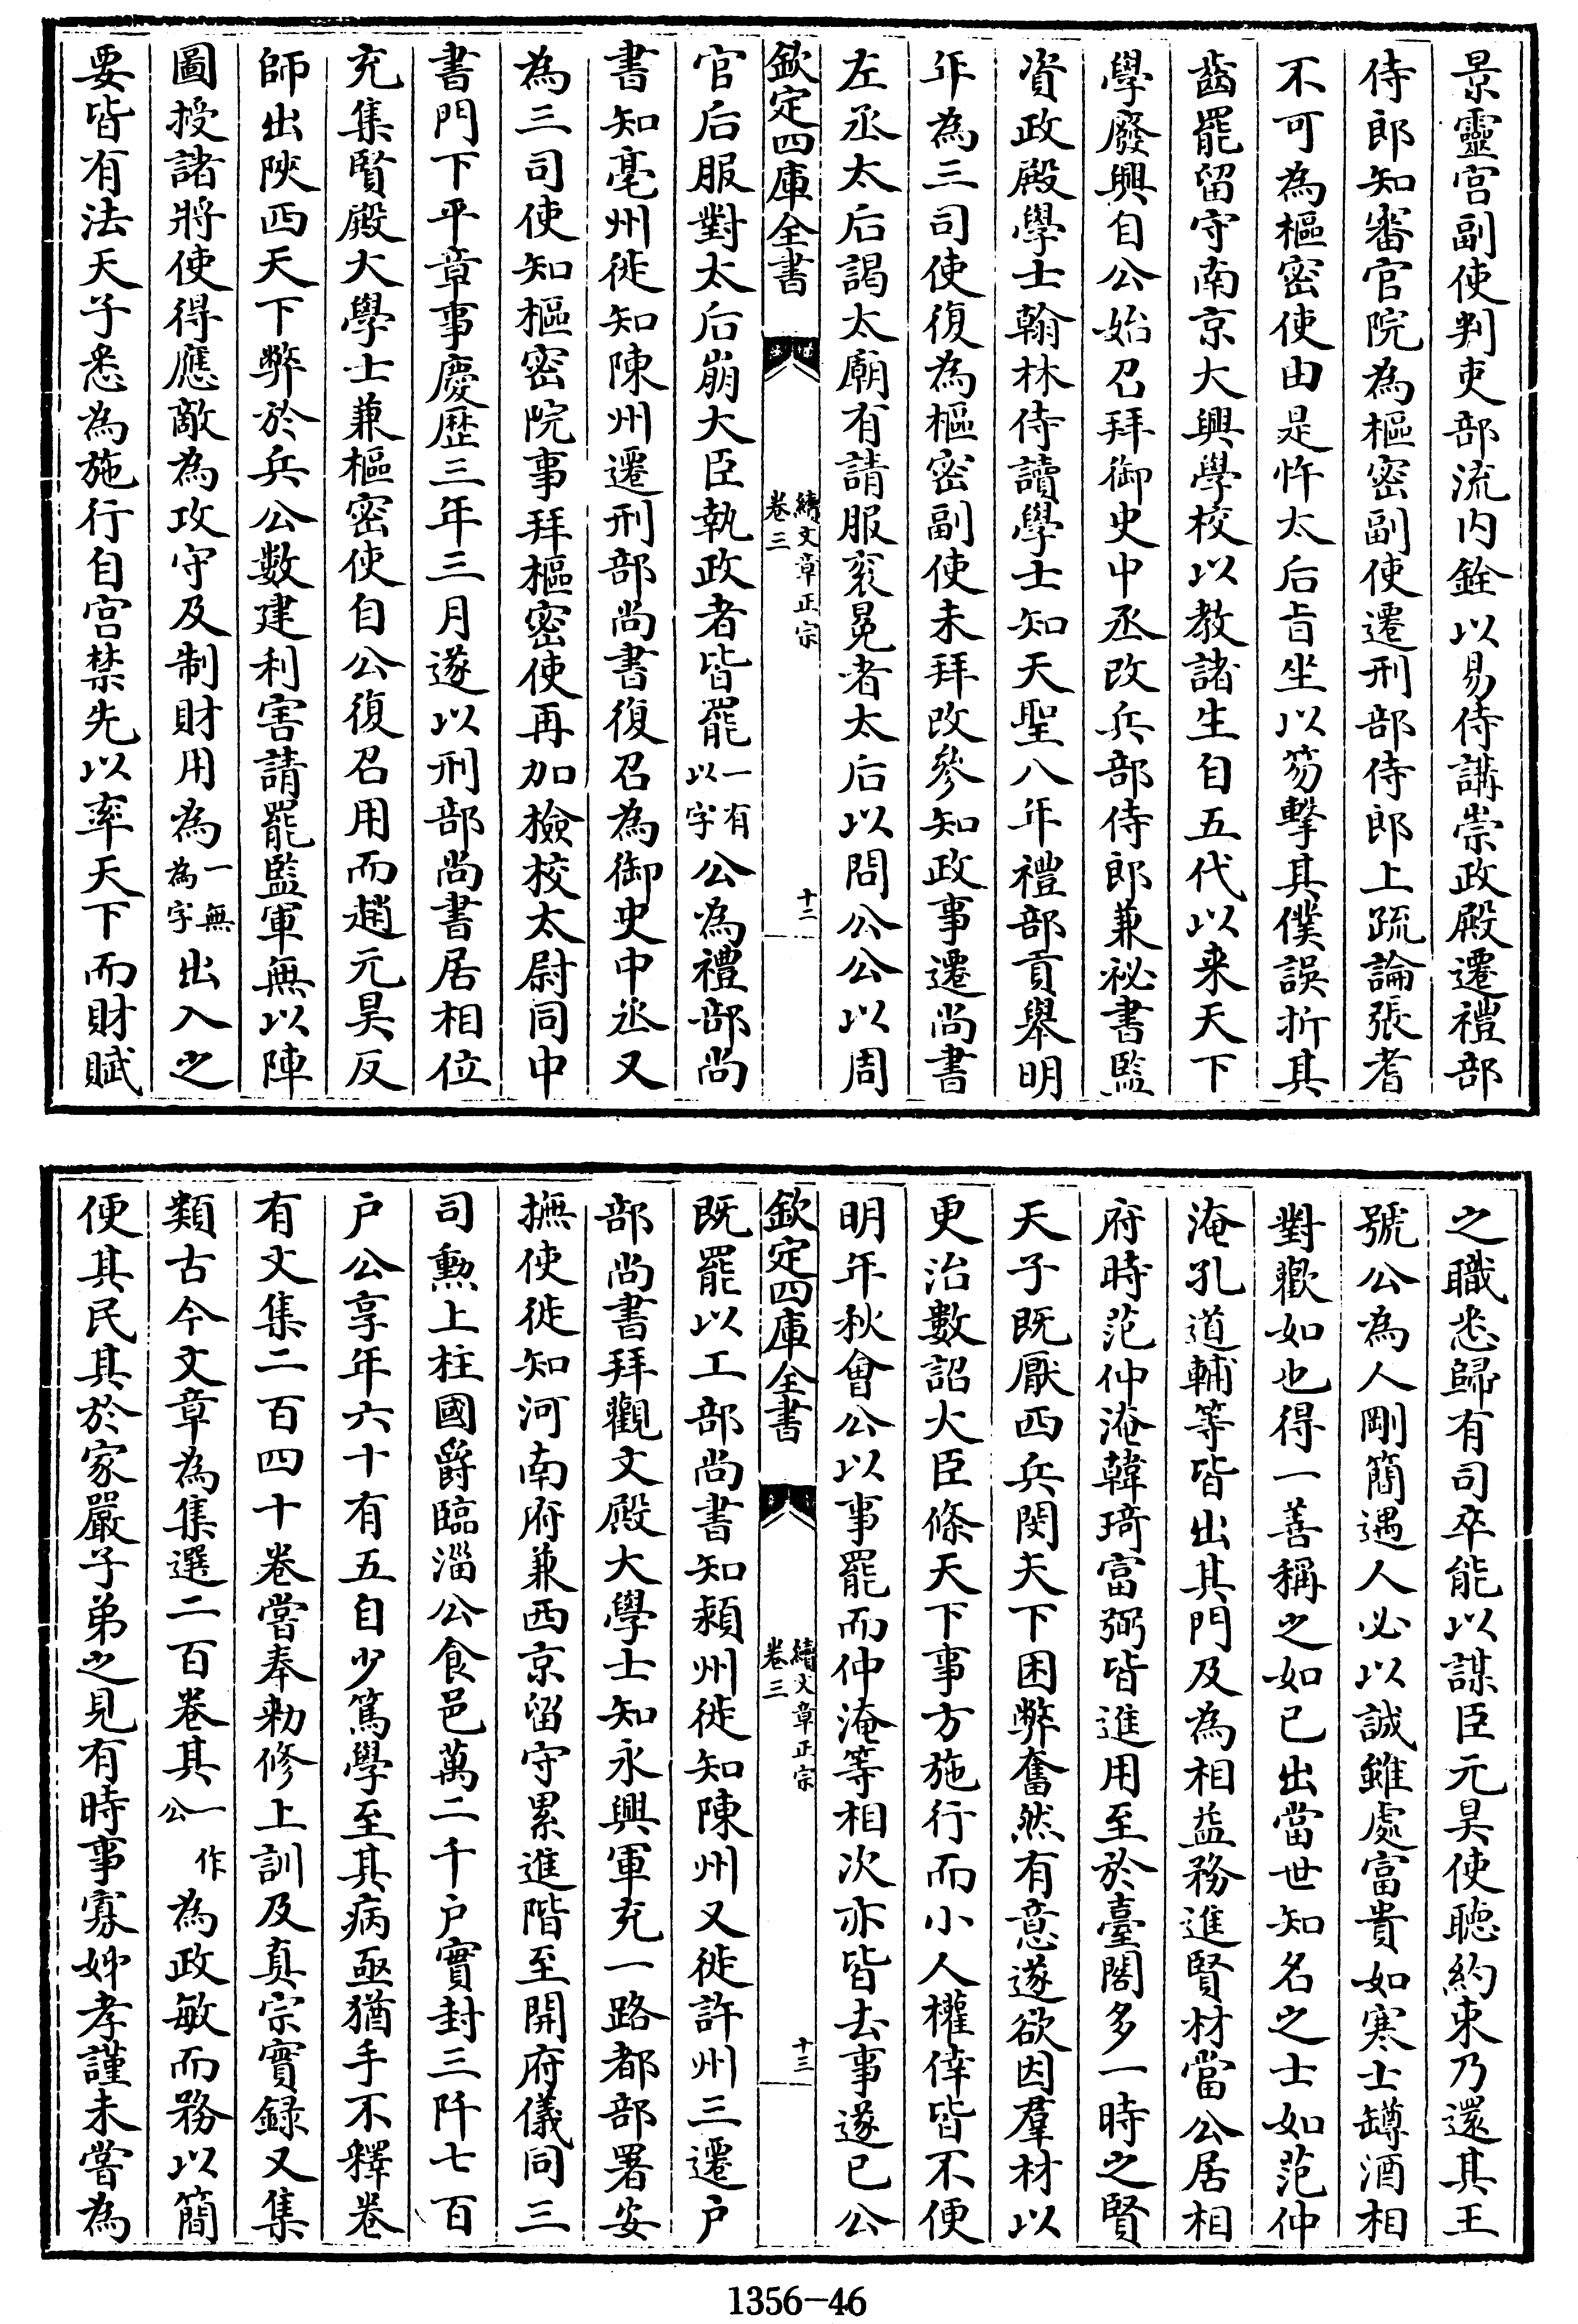 景靈宫副使判吏部流内銓以易侍講崇政殿遷禮部
侍郎知審官院為樞密副使遷刑部侍郎上疏論張耆
不可為樞密使由是忤太后旨坐以笏擊其僕誤折其
齒罷留守南京大興學校以教諸生自五代以来天下
學廢興自公始召拜御史中丞改兵部侍郎兼祕書監
資政殿學士翰林侍讀學士知天聖八年禮部貢舉明
年為三司使復為樞密副使未拜改參知政事遷尚書
左丞太后謁太廟有請服衮冕者太后以問公公以周
欽定四庫全書
續文章正宗
卷三
十二
官后服對太后崩大臣執政者皆罷一有以字公為禮部尚
書知亳州徙知陳州遷刑部尚書復召為御史中丞又
為三司使知樞密院事拜樞密使再加檢校太尉同中
書門下平章事慶歴三年三月遂以刑部尚書居相位
充集賢殿大學士兼樞密使自公復召用而趙元昊反
師出陜西天下弊於兵公數建利害請罷監軍無以陣
圖授諸將使得應敵為攻守及制財用為一無為字出入之
要皆有法天子悉為施行自宫禁先以率天下而財賦
之職悉歸有司卒能以謀臣元昊使聴約束乃還其王
號公為人剛簡遇人必以誠雖處富貴如寒士罇酒相
對歡如也得一善稱之如已出當世知名之士如范仲
淹孔道輔等皆出其門及為相益務進賢材當公居相
府時范仲淹韓琦富弼皆進用至於臺閣多一時之賢
天子既厭西兵閔天下困弊奮然有意遂欲因羣材以
更治數詔大臣條天下事方施行而小人權倖皆不便
明年秋會公以事罷而仲淹等相次亦皆去事遂已公
欽定四庫全書
續文章正宗
卷三
十三
既罷以工部尚書知潁州徙知陳州又徙許州三遷户
部尚書拜觀文殿大學士知永興軍充一路都部署安
撫使徙知河南府兼西京留守累進階至開府儀同三
司勲上柱國爵臨淄公食邑萬二千户實封三阡七百
户公享年六十有五自少篤學至其病亟猶手不釋卷
有文集二百四十卷嘗奉勅修上訓及真宗實録又集
類古今文章為集選二百卷其一作公為政敏而務以簡
便其民其於家嚴子弟之見有時事寡姊孝謹未嘗為
1356-46